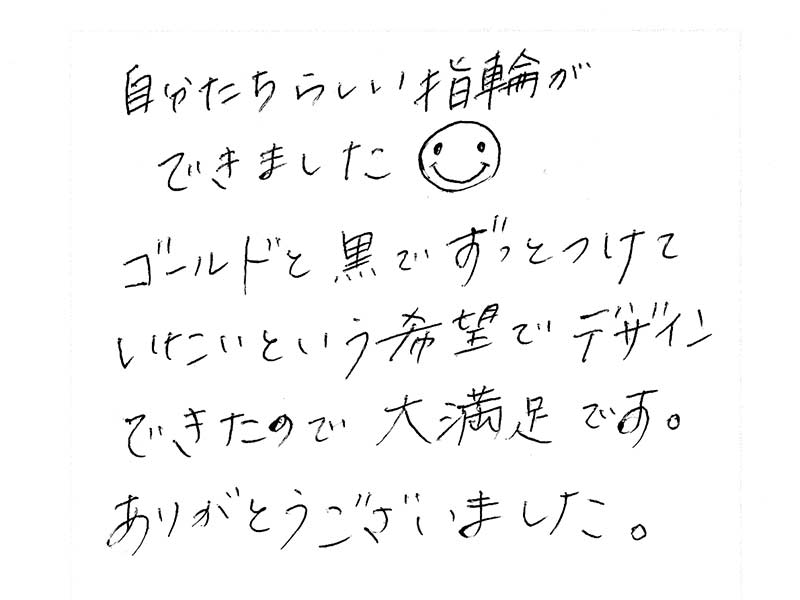 自分たちらしい指輪が
できました
ゴールドと黒でずっとつけて
いたいという希望でデザイン
できたので大満足です。
ありがとうございました。